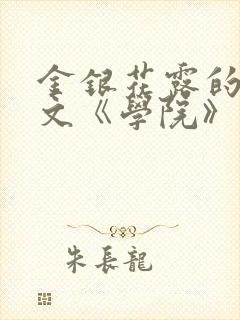 金銀花露的
文《學院》
朱長龍